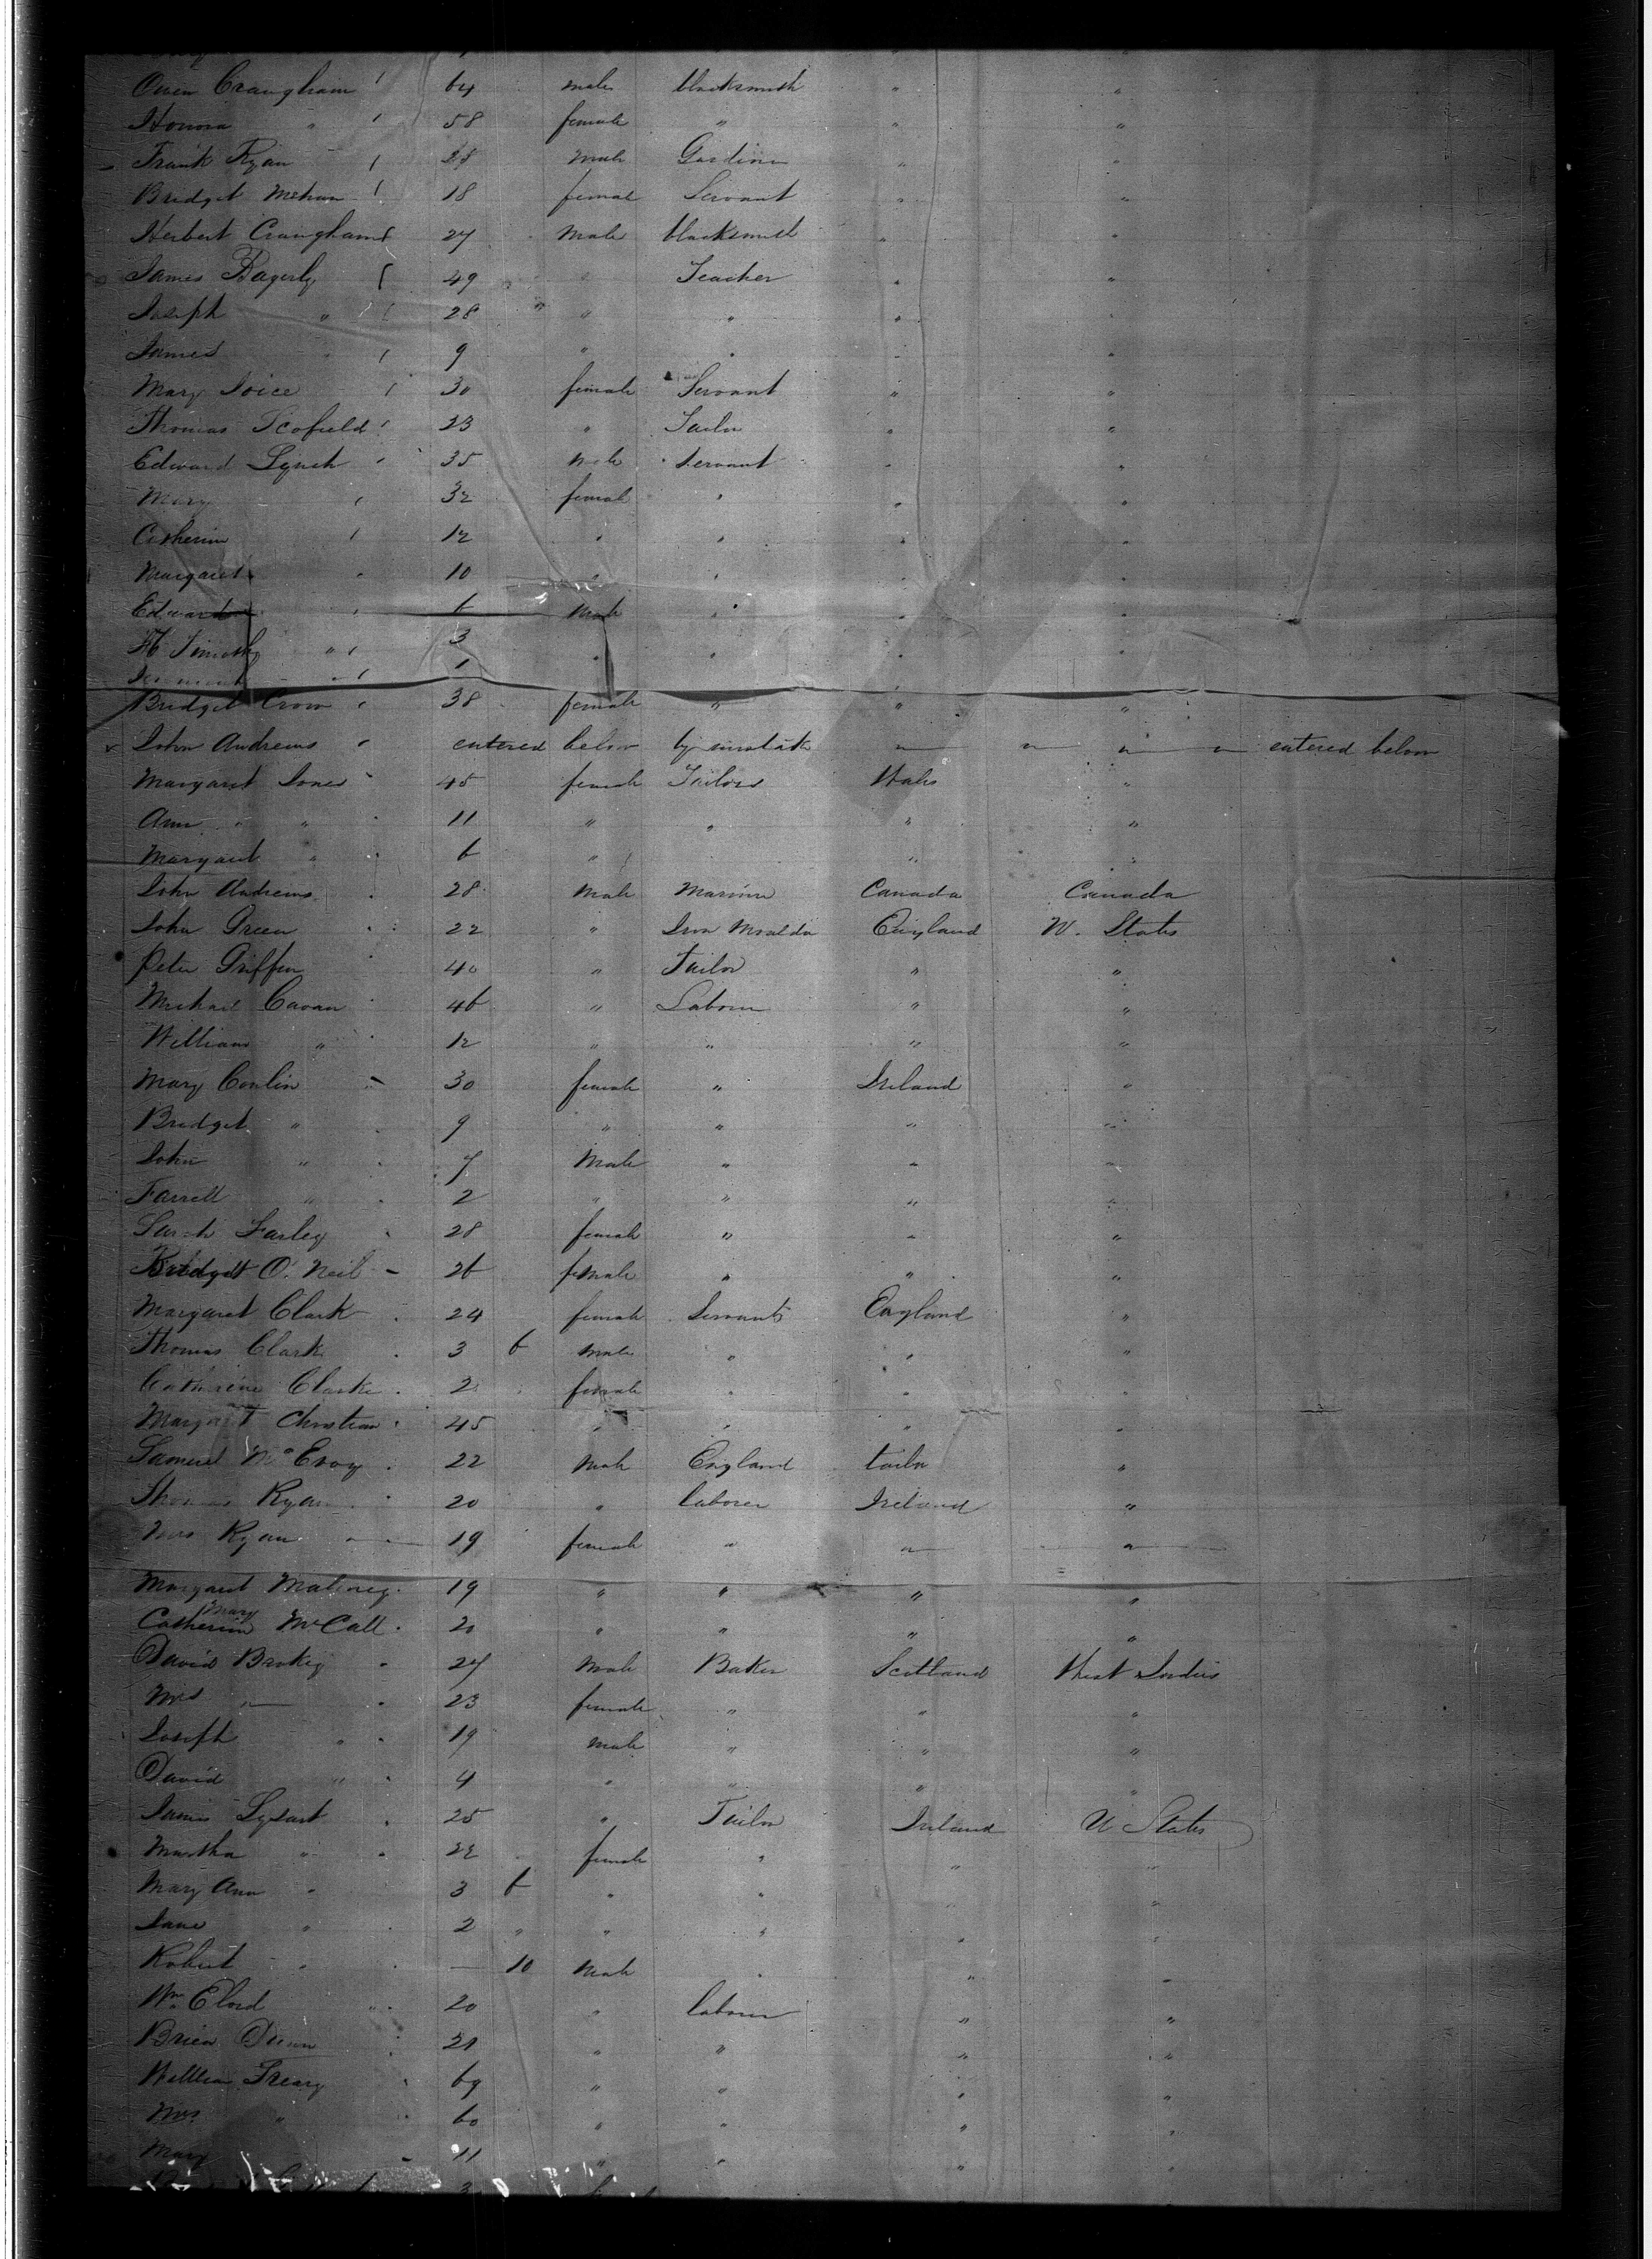 Owen Craugham 64 male blacksmith " "
Honora " 58 female " " "
Frank Ryan male Gardiner " "
Bridget Mehan 18 female Servant " "
Herbert Craugham 27 male blacksmith " "
James Bagerly 49 " Teacher " "
Joseph " 28 " " " "
James " 9 " " " "
Mary Joice 30 female Servant " "
Thomas Scofield 23 " Tailor " "
Edward Lynch 35 male servant " "
Mary 32 female " " "
Catherine 12 " " " "
Margaret 10 " " " "
Edward 6 male " " "
Timothy " 3 " " " "
" 1 "
Bridget Crow 38 female " " "
John Andrews entered below by mistake " " " " entered below
Margaret Jones 45 female Tailors Wales "
Ann " " 11 " " " "
Margaret " 6 " " "
John Andrews 28 male Marine Canada Canada
John Green 22 " Iron Moulder England U. States
Peter Griffin 40 " Tailor " "
Michael Cavan 46 " Laborer " "
William " 12 " " " "
Mary Conlin 30 female " Ireland "
Bridget " 9 " " " "
John " 7 Male " " "
Farrell " 2 " " " "
Sarah Farley 28 female " " "
Bridgett O'Neil 26 female " " "
Margaret Clark 24 female Servants England "
Thomas Clark 3 6 male " " "
Catharine Clarke 2 female " " "
Margaret Christian 45 " " " "
Samuel McEvoy 22 male England tailor "
Thomas Ryan 20 " laborer Ireland "
Mrs Ryan 19 female " " "
Margaret Maloney 19 " " " "
Mary
Catherine McCall 20 " " " "
David Brokey 27 male Baker Scotland West Indies
Mrs " 23 female " " "
Joseph " 19 male " " "
David " 4 " " " "
James Lysart 25 " Tailor Ireland U States
Martha " 22 female " " "
Mary Ann " 3 6 " " " "
Jane " 2 " " " " "
Robert " — 10 male " " "
Wm Elord 20 " laborer " "
Brien Dunn 21 " " " "
William Freary 69 " " " "
Mrs " 60 " " " "
Mary 11 " " " "